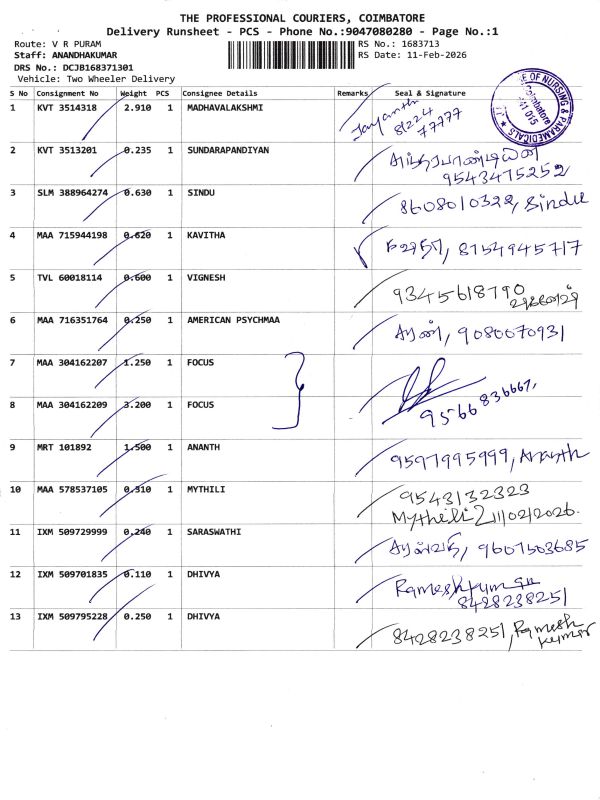 THE PROFESSIONAL COURIERS, COIMBATORE
Delivery Runsheet - PCS - Phone No.:9047080280 - Page No.:1
Route: V R PURAM RS No.: 1683713
Staff: ANANDHAKUMAR RS Date: 11-Feb-2026
DRS No.: DCJB168371301
Vehicle: Two Wheeler Delivery
S No Consignment No Weight PCS Consignee Details Remarks Seal & Signature
E OF NURSING & PARAMEDICALS
Coimbatore
641 015
1 KVT 3514318 2.910 1 MADHAVALAKSHMI Jayanth
81224
77777
2 KVT 3513201 0.235 1 SUNDARAPANDIYAN
9543475252
3 SLM 388964274 0.630 1 SINDU 8608010322, Sindu
4 MAA 715944198 0.620 1 KAVITHA கவிதா, 8754945717
5 TVL 60018114 0.600 1 VIGNESH 9345618790
6 MAA 716351764 0.250 1 AMERICAN PSYCHMAA அருண், 9080070931
7 MAA 304162207 1.250 1 FOCUS
8 MAA 304162209 3.200 1 FOCUS 9566836667,
9 MRT 101892 1.500 1 ANANTH 9597995999, Ananth
10 MAA 578537105 0.310 1 MYTHILI 9543132323
Mythili 11/02/2026.
11 IXM 509729999 0.240 1 SARASWATHI 9607503685
12 IXM 509701835 0.110 1 DHIVYA Rameshkumar
8428238251
13 IXM 509795228 0.250 1 DHIVYA 8428238251, Ramesh
kumar